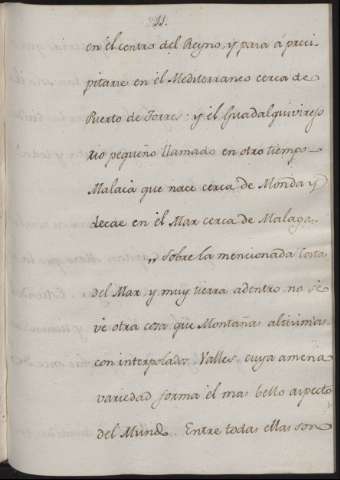 21.
en èl centro del Reyno, y para à preci-
pitarse en èl Mediterraneo cerca de
Puerto de Torres: y èl Guadalquivirejo
rio pequeño llamado en otro tiempo
Malaca que nace cerca de Monda y
decae en èl Mar cerca de Malaga.
,, Sobre la mencionada Costa
del Mar, y muy tierra adentro no se
vè otra cosa que Montañas altisimas
con interpolados Valles, cuya amena
variedad forma èl mas bello aspecto
del Mundo. Entre todas ellas son